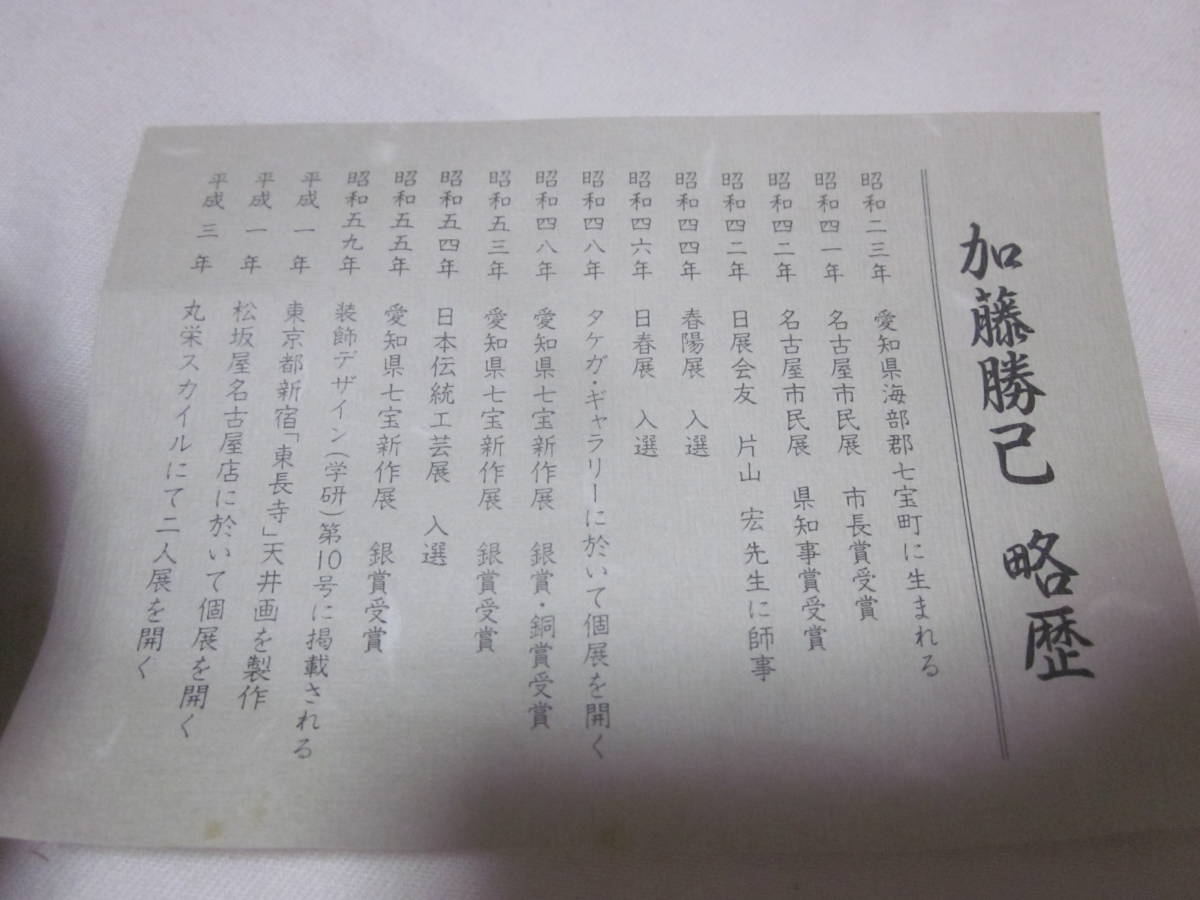 加藤勝己 略歴
昭和二三年 愛知県海部郡七宝町に生まれる
昭和四一年 名古屋市民展 市長賞受賞
昭和四二年 名古屋市民展 県知事賞受賞
昭和四二年 日展会友 片山 宏先生に師事
昭和四四年 春陽展 入選
昭和四六年 日春展 入選
昭和四八年 タケガ・ギャラリーに於いて個展を開く
昭和四八年 愛知県七宝新作展 銀賞・銅賞受賞
昭和五三年 愛知県七宝新作展 銀賞受賞
昭和五四年 日本伝統工芸展 入選
昭和五五年 愛知県七宝新作展 銀賞受賞
昭和五九年 装飾デザイン(学研)第10号に掲載される
平成一年 東京都新宿「東長寺」天井画を製作
平成一年 松坂屋名古屋店に於いて個展を開く
平成三年 丸栄スカイルにて二人展を開く